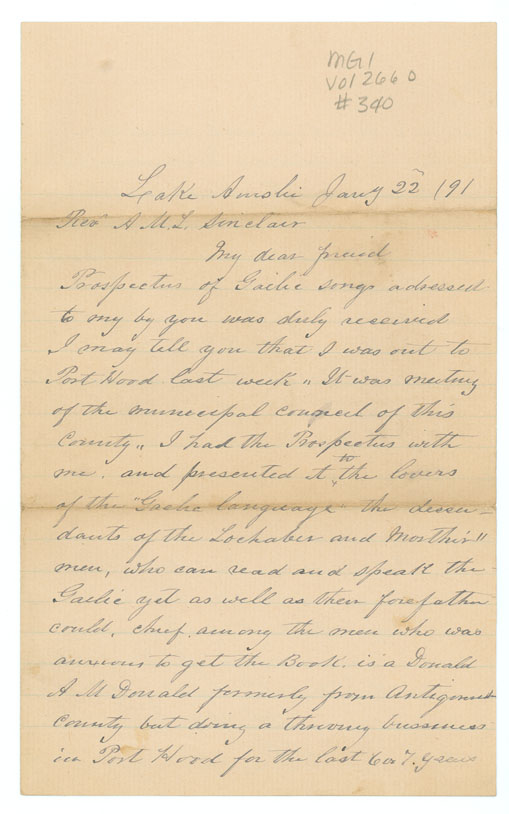 MG1
Vol 2660
#340
Lake Ainslie Jany 22 /91
Rev A M.L. Sinclair
My dear friend
Prospectus of Gaelic songs adressed
to my by you was duly received
I may tell you that I was out to
Port Hood last week " It was meeting
of the municipal council of this
County " I had the Prospectus with
me. and presented it to the lovers
of the "Gaelic language" the decen-
dants of the Lochaber and
men, who can read and speak the
Gaelic yet as well as their forefather
could, chief among the men who was
anxious to get the Book. is a Donald
A McDonald formerly from Antigonish
county but doing a thriving bussiness
in Port Hood for the last 6 or 7. years